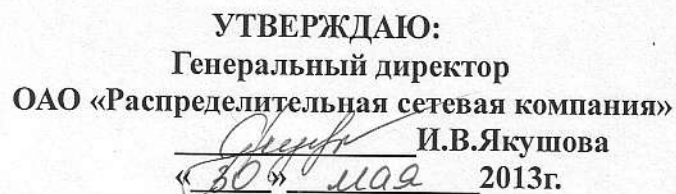 УТВЕРЖДАЮ:
Генеральный директор
ОАО «Распределительная сетевая компания»
И.В.Якушова
«30» мая 2013г.